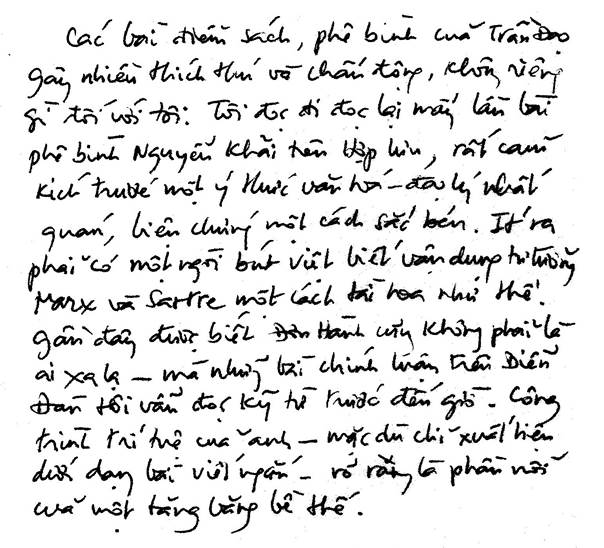 Các bài điểm sách, phê bình của Trần Đạo
gây nhiều thích thú và chấn động, không riêng
gì đối với tôi. Tôi đọc đi đọc lại mấy lần bài
phê bình Nguyễn Khải trên Hợp lưu, rất cảm
kích trước một ý thức văn hoá – đạo lý nhất
quán, biện chứng một cách sắc bén. Ít ra
phải có một ngòi bút Việt biết vận dụng tư tưởng
Marx và Sartre một cách tài hoa như thế.
Gần đây được biết Hành cũng không phải là
ai xa lạ – mà những bài chính luận trên Diễn
Đàn tôi vẫn đọc kỹ từ trước đến giờ. Công
trình trí tuệ của anh – mặc dù chỉ xuất hiện
dưới dạng bài viết ngắn – rõ ràng là phần nổi
của một tảng băng bề thế.